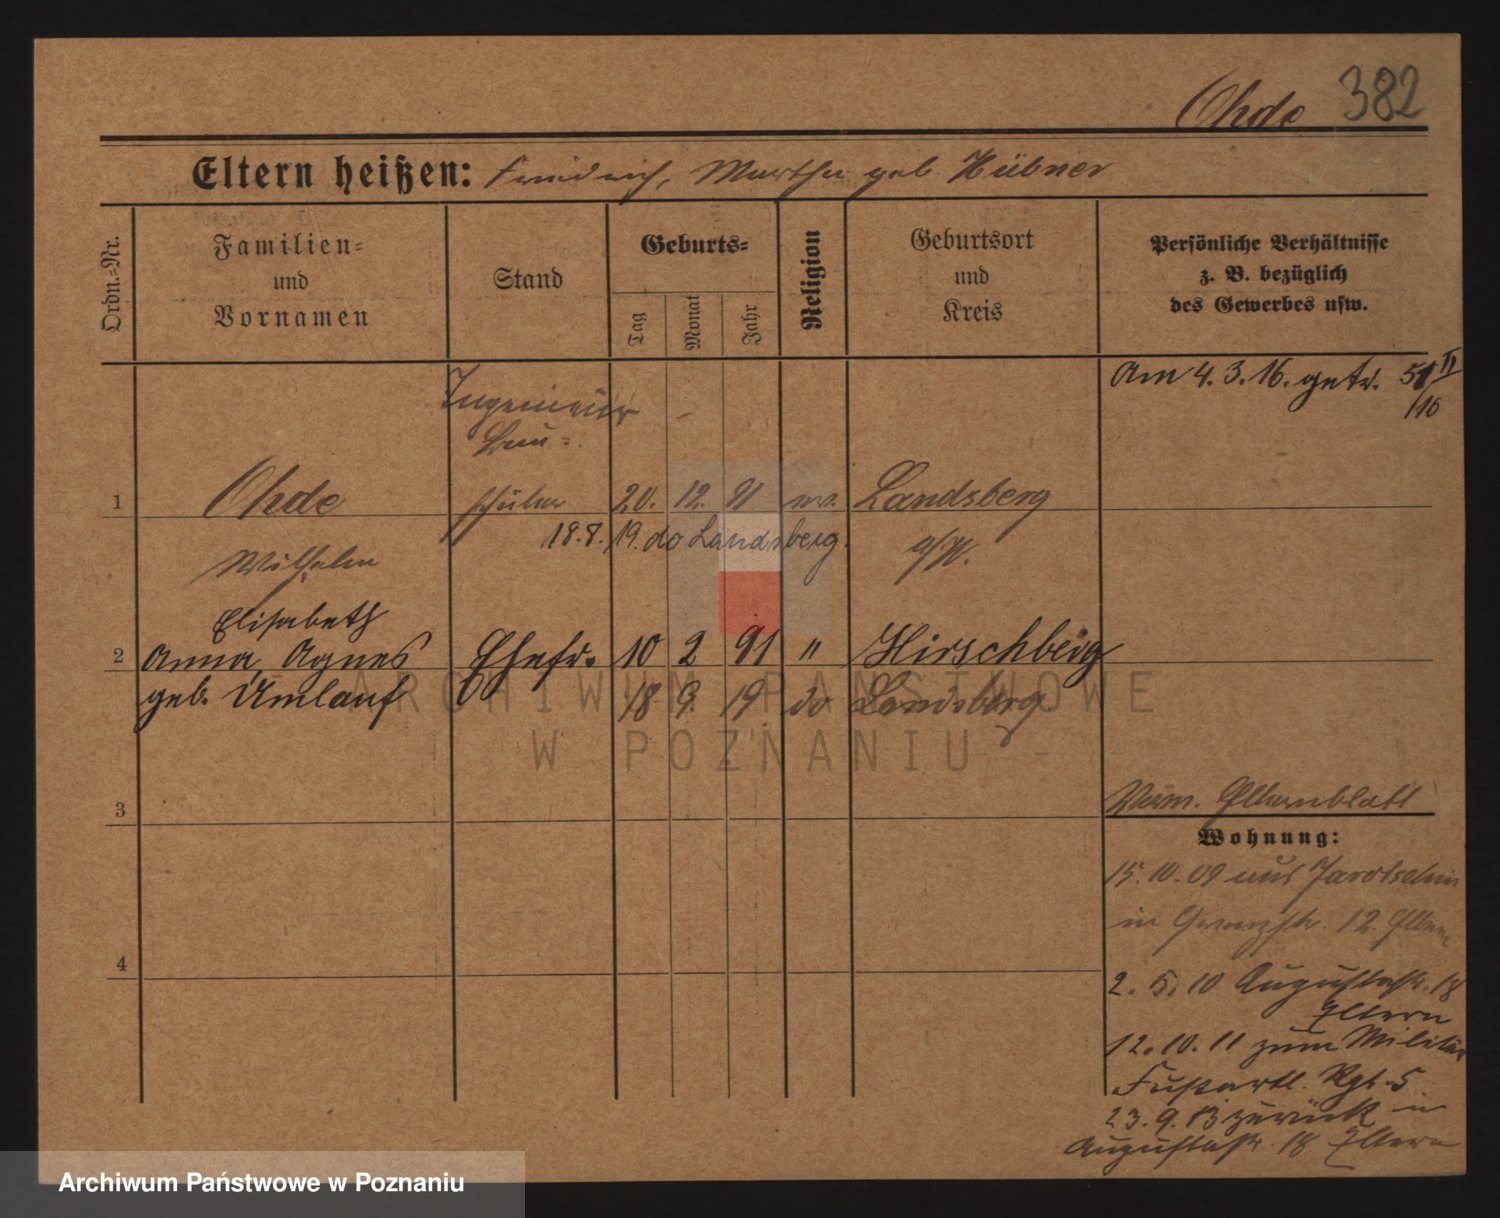 Ohde 382
Eltern heißen: Friedrich, Martha geb. Hübner
Ordn.-Nr.
Familien-
und
Vornamen
Stand
Geburts-
Tag
Monat
Jahr
Religion
Geburtsort
und
Kreis
Persönliche Verhältnisse
z. B. bezüglich
des Gewerbes usw.
Am 4.3.16. getr. 51 II
/16
Ingenieur
Bau-
1 Ohde schüler 20. 12. 91 Landsberg
18.8.19. do Landsberg.
a/W.
Wilhelm
Elisabeth
2 Anna, Agnes Ehefr. 10 2 91 " Hirschberg
geb. Umlauf 18 9 19 do Landsberg
3
4
Elternblatt
Wohnung:
15.10.09 aus Jarotschin
in 12 Eltern
2.5.10 Augustastr. 18
Eltern
12.10.11 zum Militär
Fußartl. Rgt. 5
23.9.13 zurück in
Augustastr. 18 Eltern
ARCHIWUM PAŃSTWOWE
W POZNANIU
Archiwum Państwowe w Poznaniu